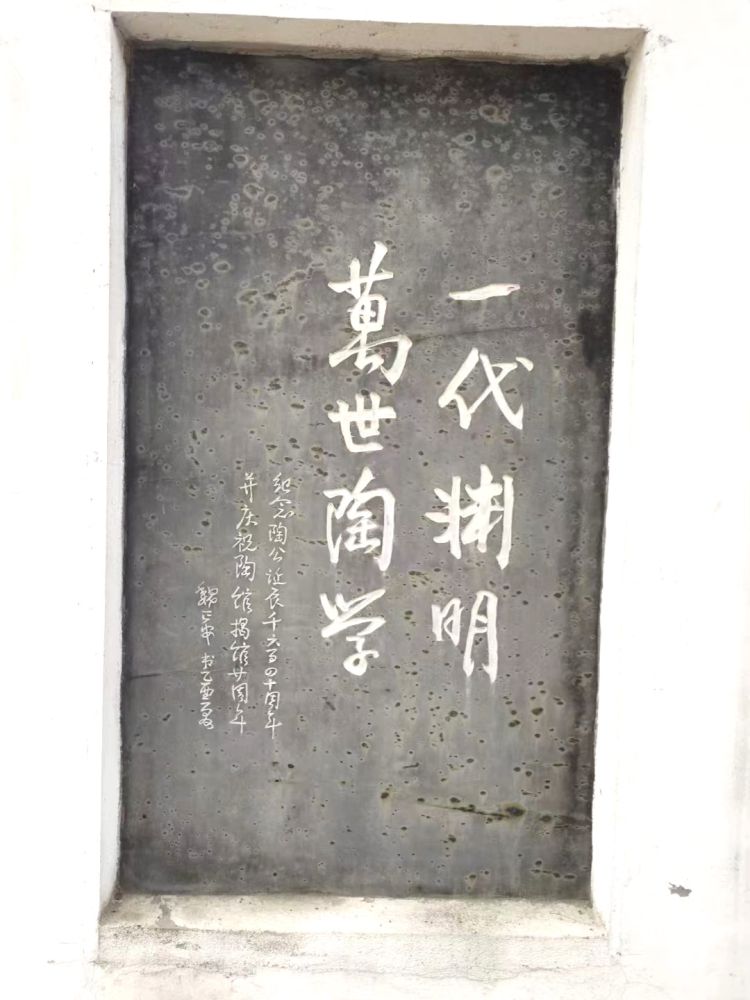 一代渊明
萬世陶学
纪念陶公诞辰千六百四十周年
并庆祝陶馆揭馆廿周年
魏正申书乙酉夏